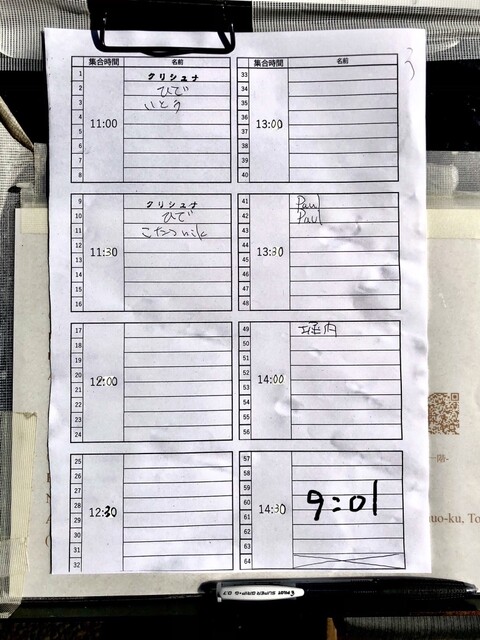 集合時間 名前
11:00
1 クリシュナ
2 ひで
3 いとう
4
5
6
7
8
11:30
9 クリシュナ
10 ひで
11 こたつ
12
13
14
15
16
12:00
17
18
19
20
21
22
23
24
12:30
25
26
27
28
29
30
31
32
集合時間 名前
13:00
33
34
35
36
37
38
39
40
13:30
41 Paul
42 Paul
43
44
45
46
47
48
14:00
49 堀内
50
51
52
53
54
55
56
14:30
57
58
59
60
61
62
63
64
9:01
uo-ku, To